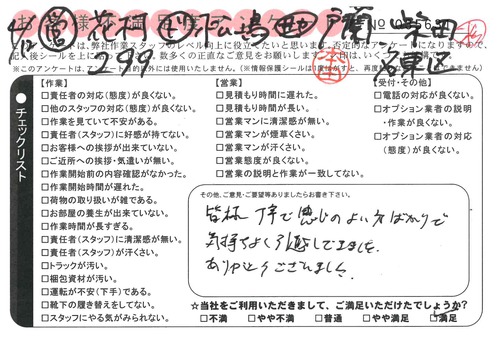 花桐 松嶋 戸蘭 柴田
299 名東区
チェックリスト
【作業】
□責任者の対応(態度)が良くない。
□他のスタッフの対応(態度)が良くない。
□作業を見ていて不安がある。
□責任者(スタッフ)に好感が持てない。
□お客様への挨拶が出来ていない。
□ご近所への挨拶・気遣いが無い。
□作業開始前の内容確認がなかった。
□作業開始時間が遅れた。
□荷物の取り扱いが雑である。
□お部屋の養生が出来ていない。
□作業時間が長すぎる。
□責任者(スタッフ)に清潔感が無い。
□責任者(スタッフ)が汗くさい。
□トラックが汚い。
□梱包資材が汚い。
□運転が不安(下手)である。
□靴下の履き替えをしてない。
□スタッフにやる気がみられない。
【営業】
□見積もり時間に遅れた。
□見積もり時間が長い。
□営業マンに清潔感が無い。
□営業マンが煙草くさい。
□営業マンが汗くさい。
□営業態度が良くない。
□営業の説明と作業が一致してない。
【受付・その他】
□電話の対応が良くない。
□オプション業者の説明
・作業が良くない。
□オプション業者の対応
(態度)が良くない。
その他、ご意見・ご要望等ありましたらお書き下さい。
皆様 丁寧で感じのよい方ばかりで
気持ちよく引越しできました。
ありがとうございました。
☆当社をご利用いただきまして、ご満足いただけたでしょうか?
□不満 □やや不満 □普通 □やや満足 □満足